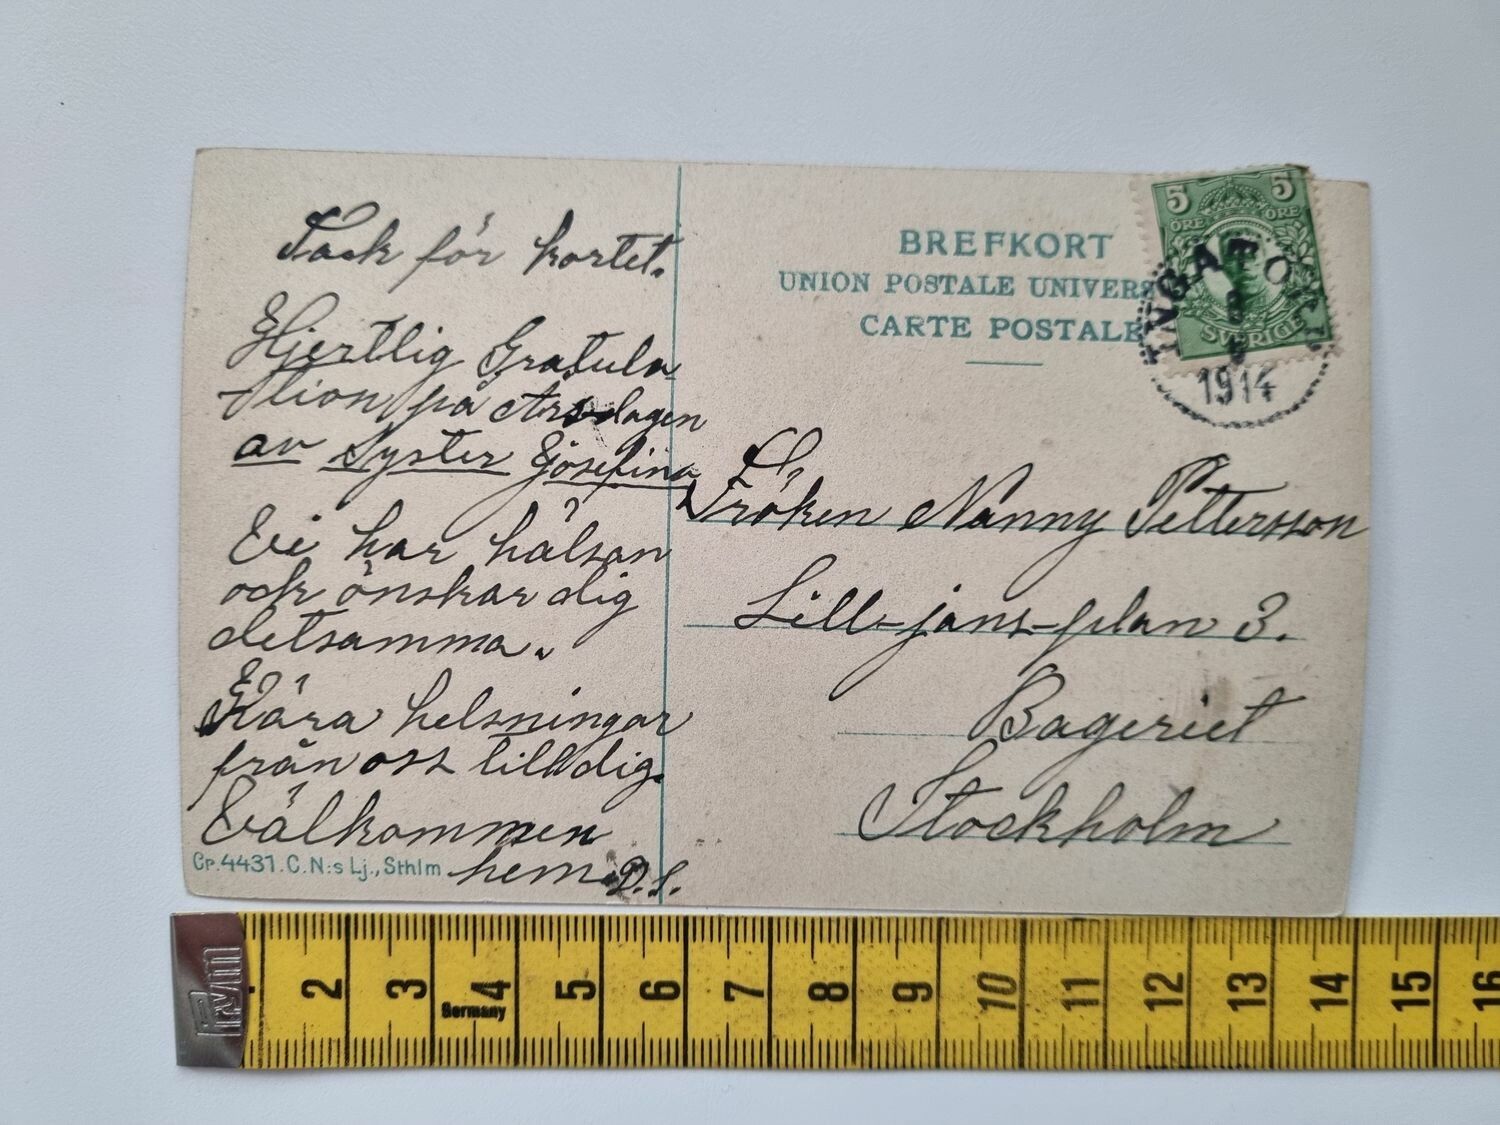 Tack för kortet.
Hjertlig Gratula-
tion på Årsdagen
av Syster Josefina
Vi har hälsan
och önskar dig
detsamma.
Kära helsningar
från oss till dig.
Välkommen
hem. D.S.
Cp. 4431. C. N:s Lj., Sthlm
BREFKORT
UNION POSTALE UNIVERS
CARTE POSTALE
5 5
ÖRE ÖRE
SVERIGE
INGATORP
1914
Fröken Nanny Pettersson
Lill-jans-plan 3.
Bageriet
Stockholm
Prym
2 3 4 5 6 7 8 9 10 11 12 13 14 15 16
Germany